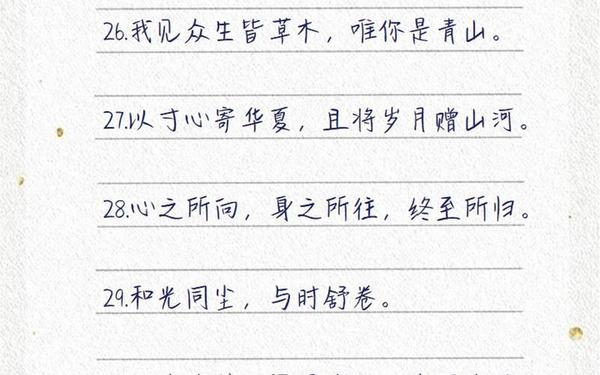 26.我见众生皆草木，唯你是青山。
27.以寸心寄华夏，且将岁月赠山河。
28.心之所向，身之所往，终至所归。
29.和光同尘，与时舒卷。